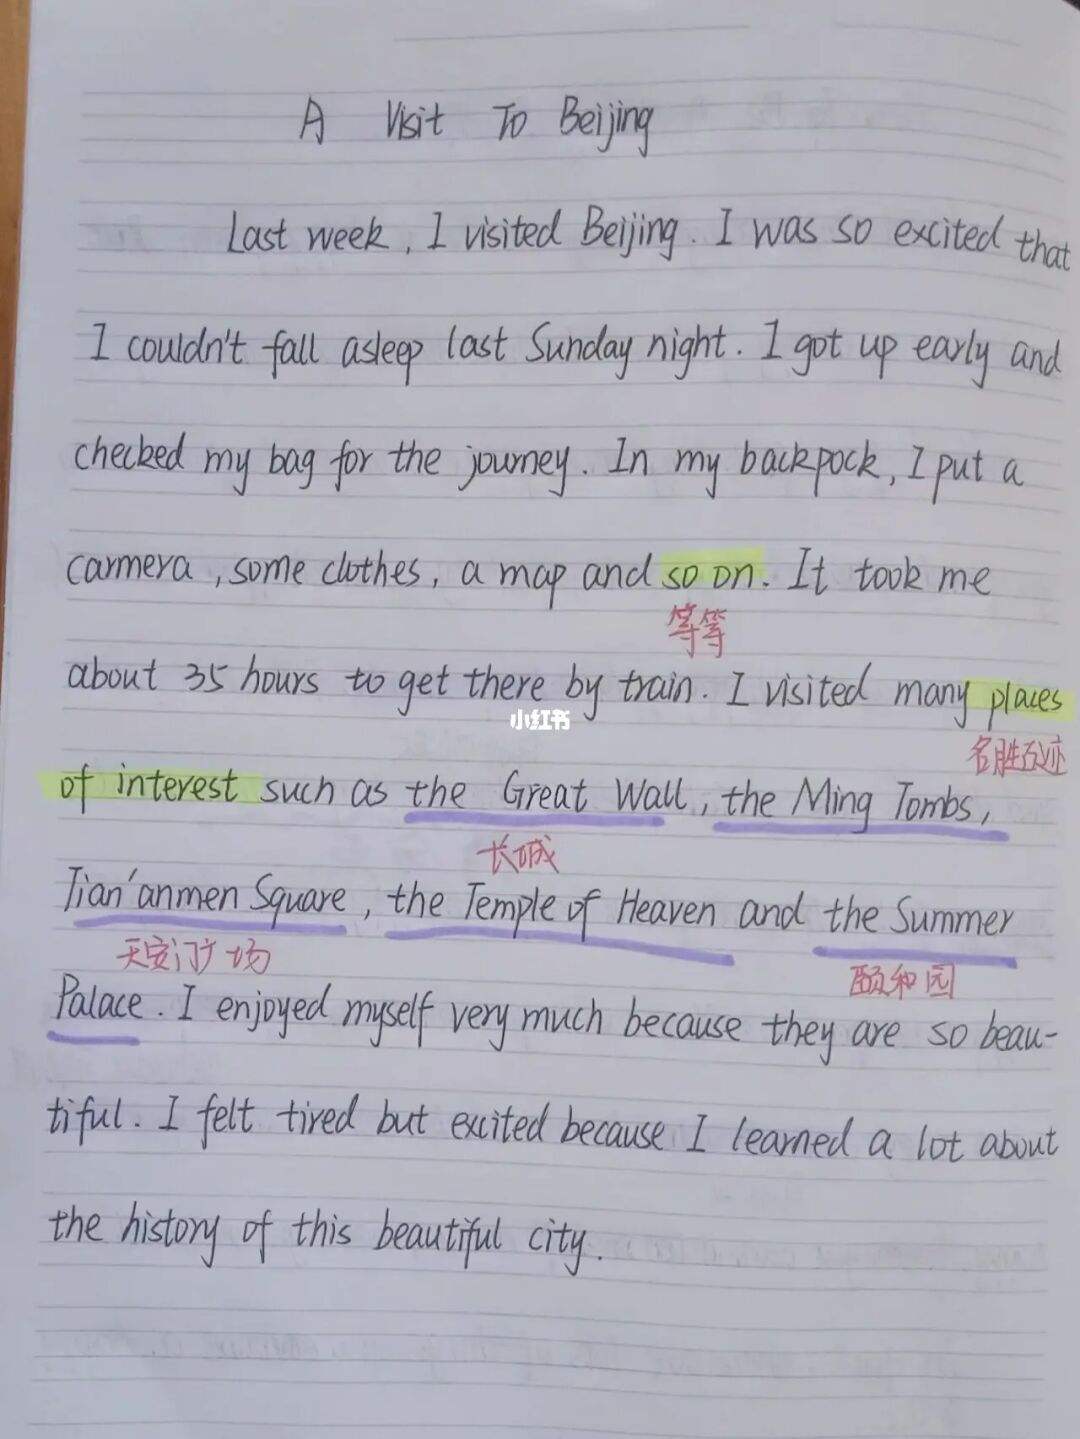 A Visit To Beijing
Last week, I visited Beijing. I was so excited that
I couldn't fall asleep last Sunday night. I got up early and
checked my bag for the journey. In my backpock, I put a
carmera, some clothes, a map and so on. It took me
等等
about 35 hours to get there by train. I visited many places
小红书
名胜古迹
of interest such as the Great Wall, the Ming Tombs,
长城
Tian'anmen Square, the Temple of Heaven and the Summer
天安门广场 颐和园
Palace. I enjoyed myself very much because they are so beau-
tiful. I felt tired but excited because I learned a lot about
the history of this beautiful city.